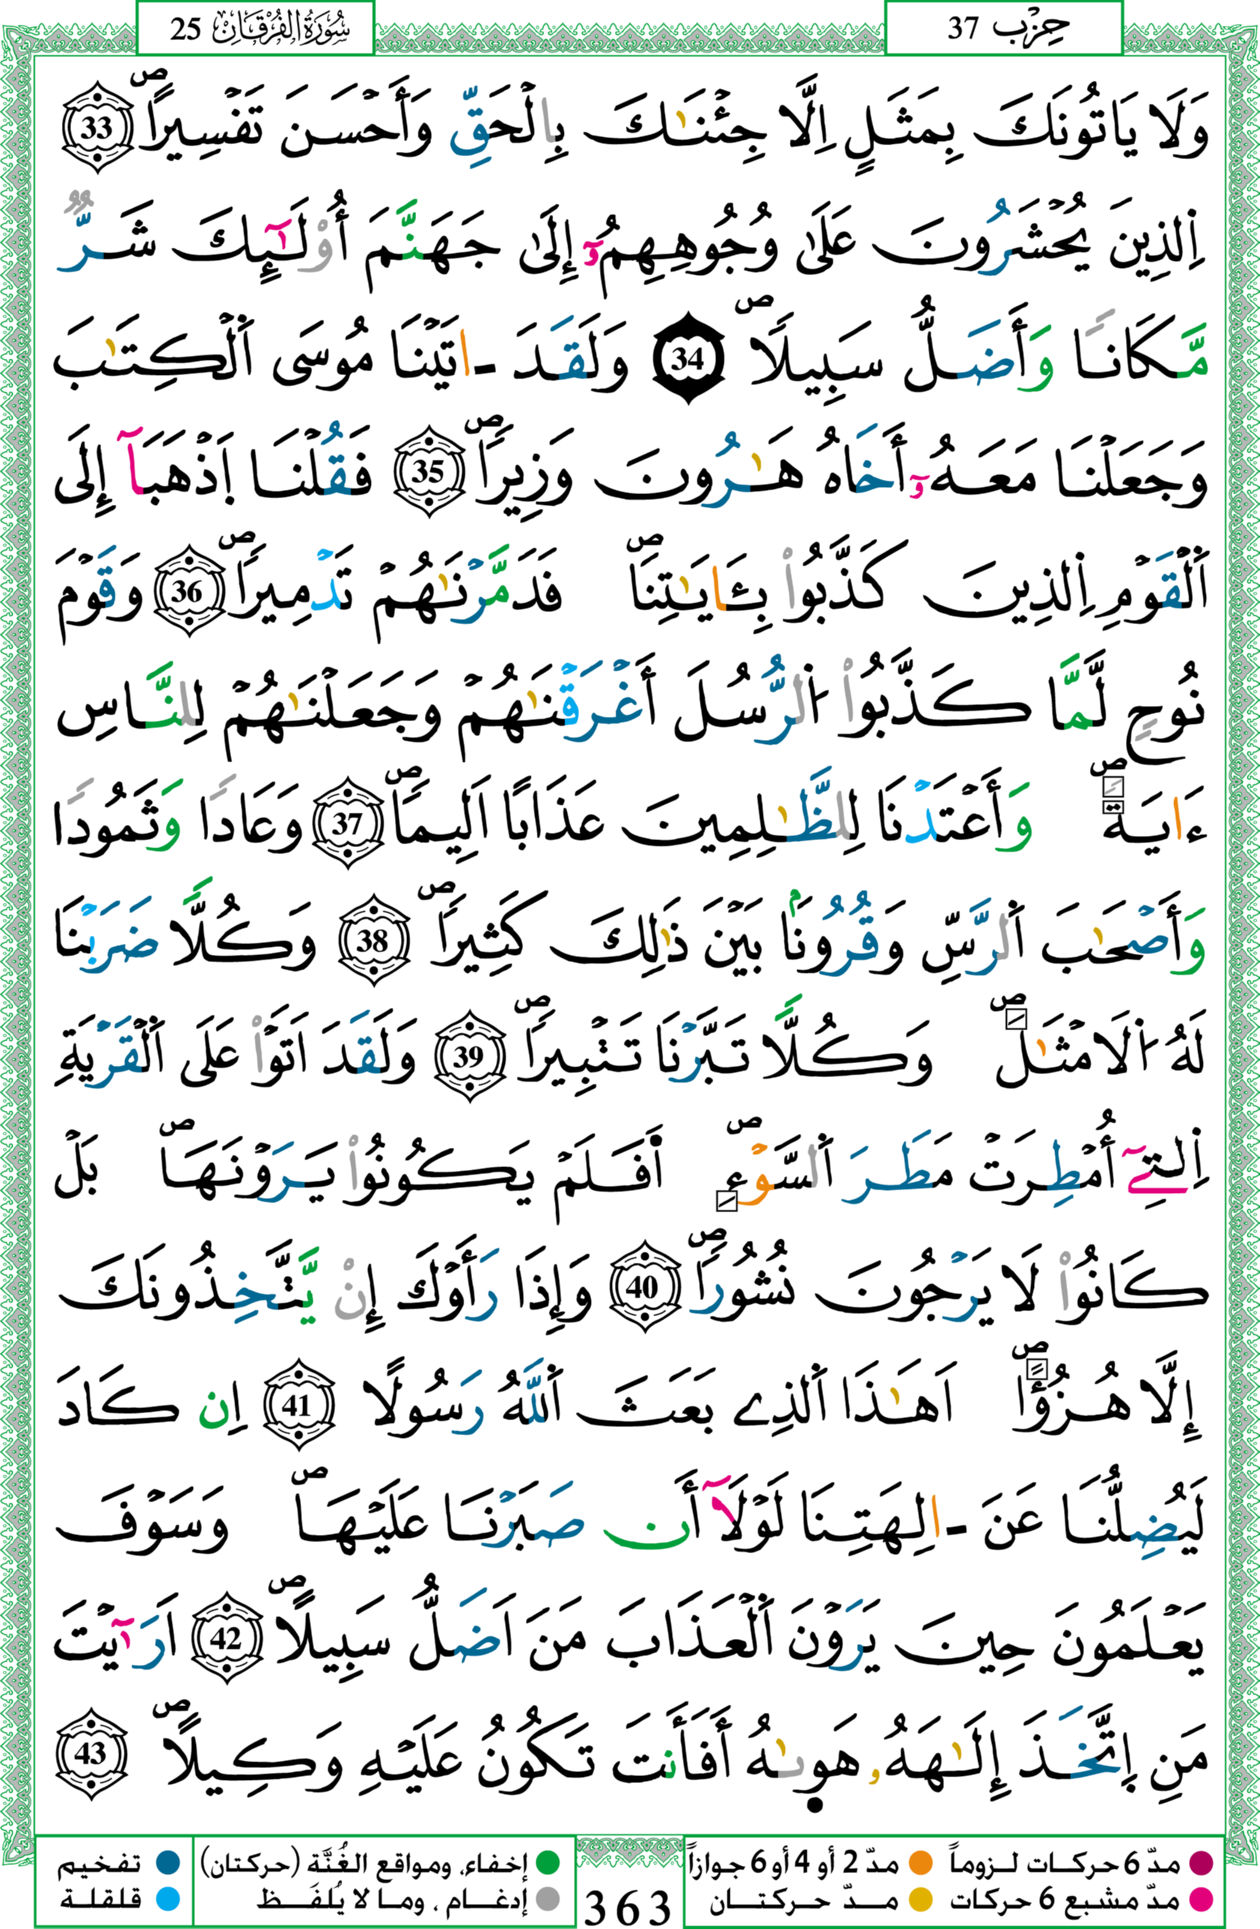 حِزْب 37
سُورَةُ الفُرْقَانِ 25
وَلَا يَاتُونَكَ بِمَثَلٍ اِلَّا جِئْنَٰكَ بِالْحَقِّ وَأَحْسَنَ تَفْسِيراًۖ 33
اِ۬لذِينَ يُحْشَرُونَ عَلَىٰ وُجُوهِهِمُۥٓ إِلَىٰ جَهَنَّمَ أُوْلَٰٓئِكَ شَرّٞ
مَّكَاناٗ وَأَضَلُّ سَبِيلاًۖ 34 وَلَقَدَ ـ اتَيْنَا مُوسَى اَ۬لْكِتَٰبَ
وَجَعَلْنَا مَعَهُۥٓ أَخَاهُ هَٰرُونَ وَزِيراًۖ 35 فَقُلْنَا اَ۪ذْهَبَآ إِلَى
اَ۬لْقَوْمِ اِ۬لذِينَ كَذَّبُواْ بِـَٔايَٰتِنَاۖ فَدَمَّرْنَٰهُمْ تَدْمِيراًۖ 36 وَقَوْمَ
نُوحٖ لَّمَّا كَذَّبُواْ اُ۬لرُّسُلَ أَغْرَقْنَٰهُمْ وَجَعَلْنَٰهُمْ لِلنَّاسِ
ءَايَةٗۖ وَأَعْتَدْنَا لِلظَّٰلِمِينَ عَذَاباً اَلِيماًۖ 37 وَعَاداٗ وَثَمُوداٗ
وَأَصْحَٰبَ اَ۬لرَّسِّ وَقُرُوناَۢ بَيْنَ ذَٰلِكَ كَثِيراًۖ 38 وَكُلّاٗ ضَرَبْنَا
لَهُ اُ۬لَامْثَٰلَۖ وَكُلّاٗ تَبَّرْنَا تَتْبِيراًۖ 39 وَلَقَدَ اَتَوْاْ عَلَى اَ۬لْقَرْيَةِ
اِ۬لتِےٓ أُمْطِرَتْ مَطَرَ اَ۬لسَّوْءِۖ اَفَلَمْ يَكُونُواْ يَرَوْنَهَاۖ بَلْ
كَانُواْ لَا يَرْجُونَ نُشُوراًۖ 40 وَإِذَا رَأَوْكَ إِنْ يَّتَّخِذُونَكَ
إِلَّا هُزُؤاًۖ اَهَٰذَا اَ۬لذِے بَعَثَ اَ۬للَّهُ رَسُولاً 41 اِن كَادَ
لَيُضِلُّنَا عَنَ ـ الِهَتِنَا لَوْلَآ أَن صَبَرْنَا عَلَيْهَاۖ وَسَوْفَ
يَعْلَمُونَ حِينَ يَرَوْنَ اَ۬لْعَذَابَ مَنَ اَضَلُّ سَبِيلاًۖ 42 اَرَآيْتَ
مَنِ اِ۪تَّخَذَ إِلَٰهَهُۥ هَوٜىٰهُ أَفَأَنتَ تَكُونُ عَلَيْهِ وَكِيلاًۖ 43
مدّ 6 حركات لـزوماً مدّ 2 أو 4 أو 6 جوازاً إخفاء، ومواقع الغُنَّة (حركتان) تفخيم
مدّ مشبع 6 حركات مــدّ حـركتــان إدغـام ، ومـا لا يُلفَـظ قلقلة
363